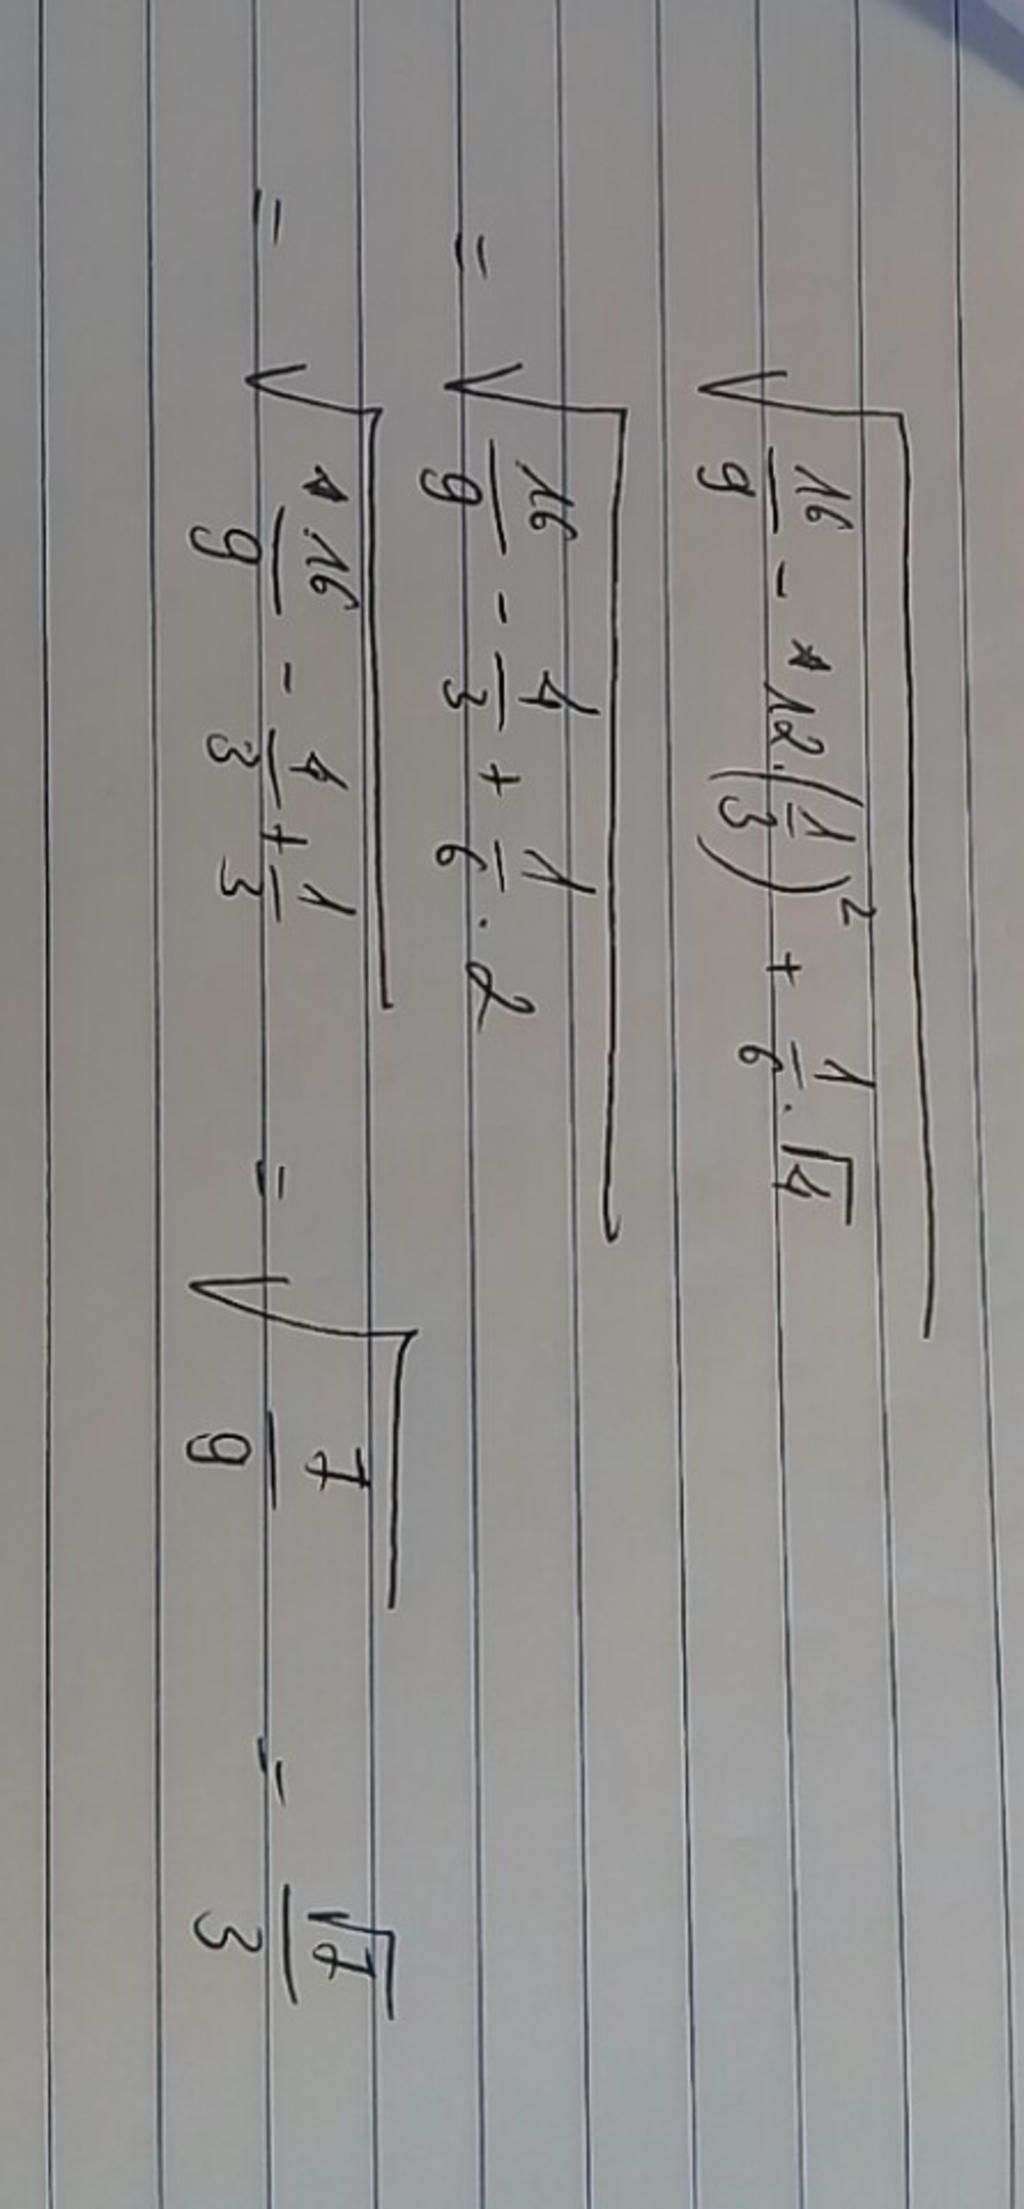 √(16/9 - 12·(1/3)² + 1/6·√4)
= √(16/9 - 4/3 + 1/6·2)
= √(16/9 - 4/3 + 1/3) = √(7/9) = √7/3